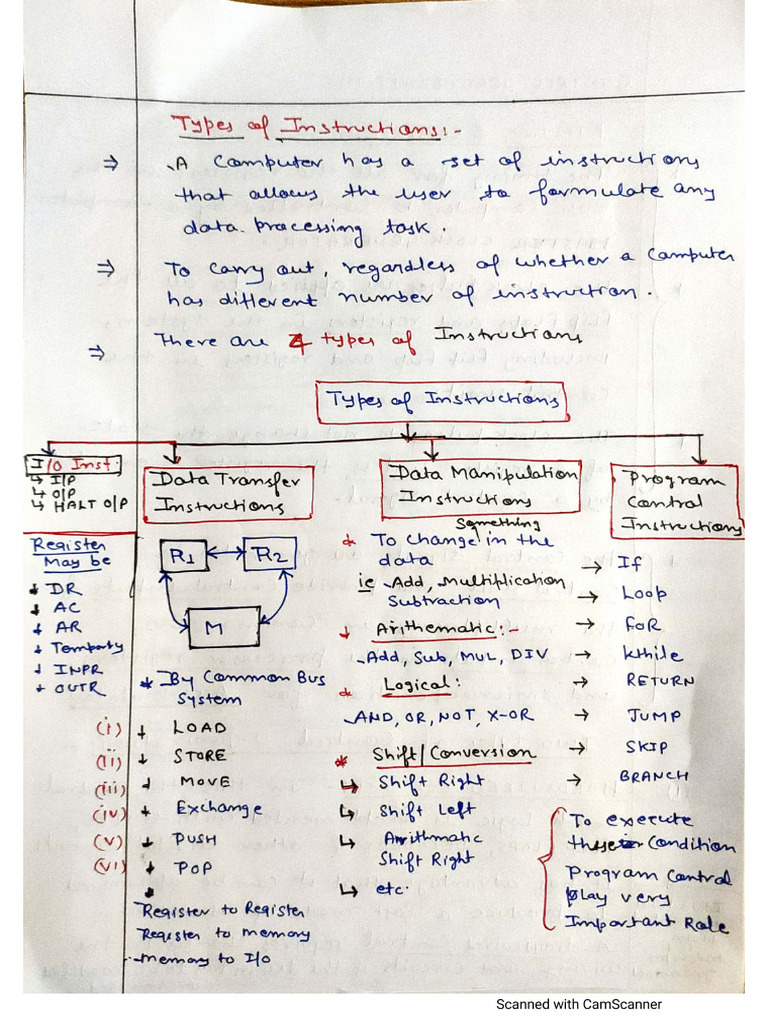 Types of Instructions:-
⇒ A Computer has a set of instructions
that allows the user to formulate any
data processing task.
⇒ To carry out, regardless of whether a Computer
has different number of instruction.
⇒ There are 4 types of Instructions
Types of Instructions
I/O Inst.
↳ I/P
↳ O/P
↳ HALT O/P
Register
May be
↓ DR
↓ AC
↓ AR
↓ Temporty
↓ INPR
↓ OUTR
Data Transfer
Instructions
R1
R2
M
* By Common Bus
System
(i) ↓ LOAD
(ii) ↓ STORE
(iii) ↓ MOVE
(iv) ↓ Exchange
(v) ↓ PUSH
(vi) ↓ POP
Register to Register
Register to memory
memory to I/O
Data Manipulation
Instructions
Something
* To change in the
data
ie Add, Multiplication
Subtraction
↓ Arithematic:-
Add, Sub, MUL, DIV
* Logical:
AND, OR, NOT, X-OR
* Shift/Conversion
↳ Shift Right
↳ Shift Left
↳ Arithmatic
Shift Right
↳ etc.
Program
Control
Instructions
→ If
→ Loop
→ FOR
→ While
→ RETURN
→ JUMP
→ SKIP
→ BRANCH
To execute
these Condition
Program Control
play very
Important Role
Scanned with CamScanner